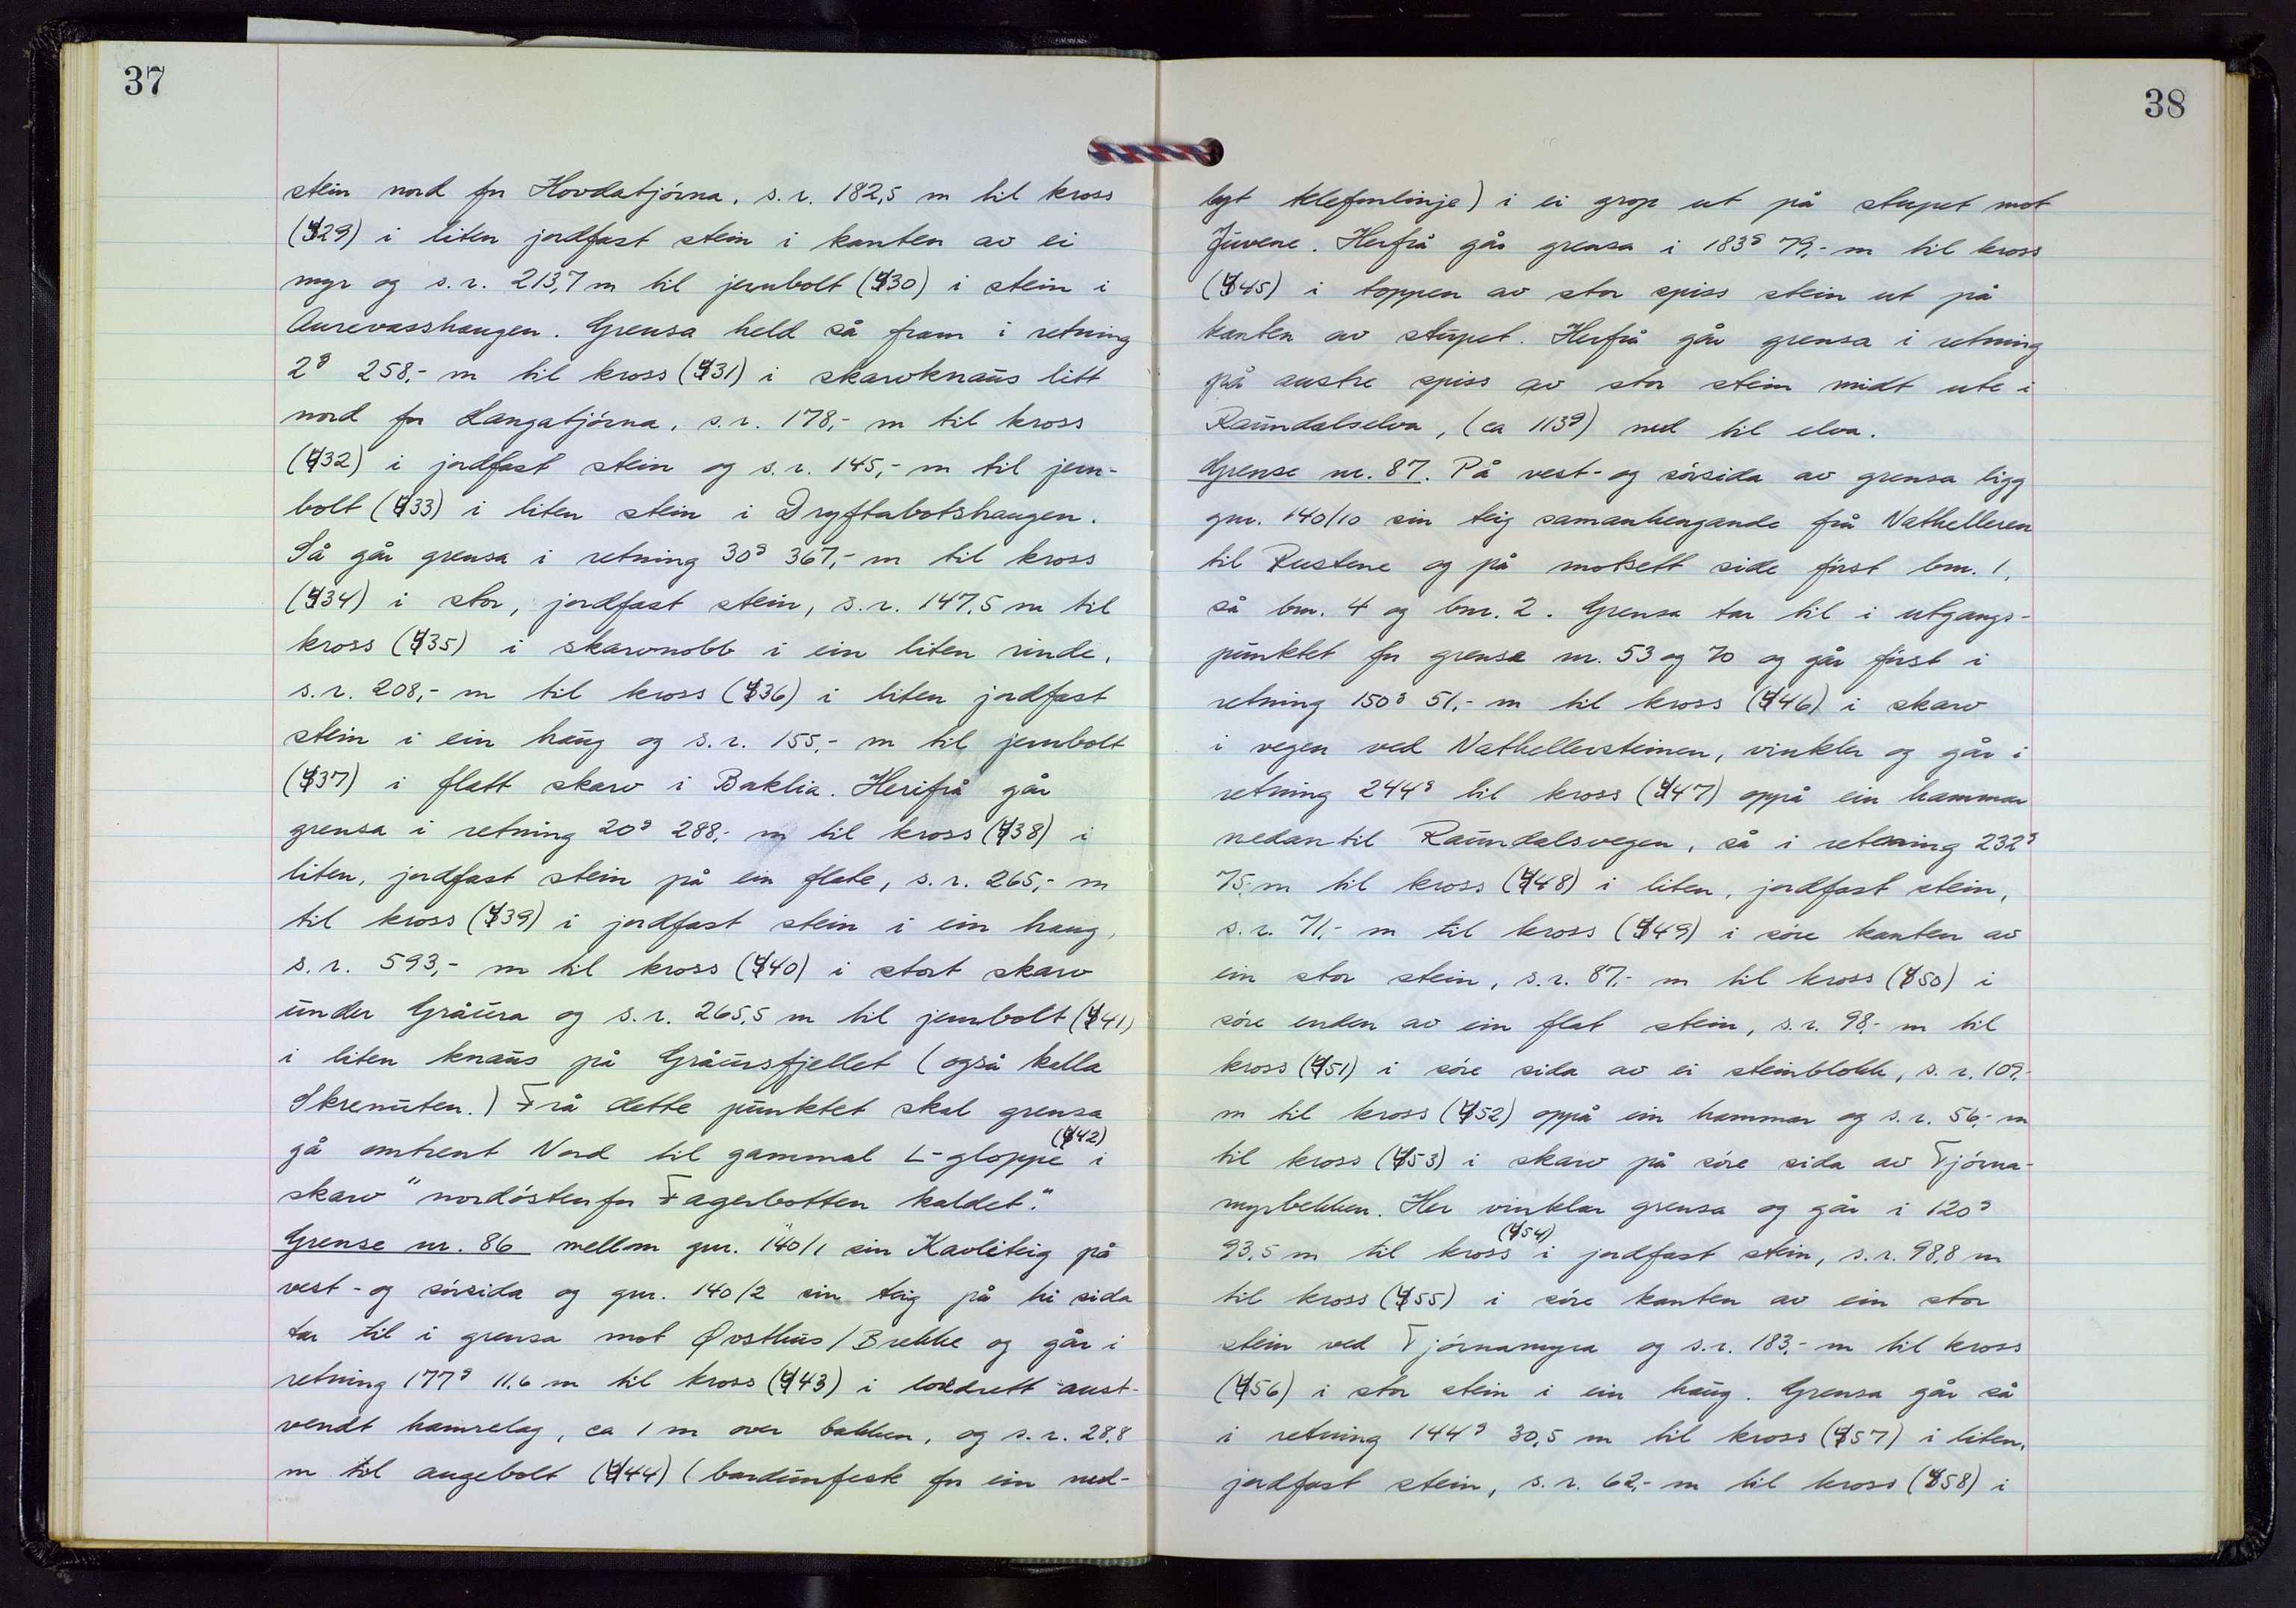 37
stein nord for Hovdatjórna, s.r. 182,5 m til kross
(429) i liten jordfast stein i kanten av ei
myr og s.r. 213,7 m til jernbolt (430) i stein i
Aurevasshaugen. Grensa held så fram i retning
2g 258,- m til kross (431) i skarvknaus litt
nord for Langatjórna, s.r. 178,- m til kross
(432) i jordfast stein og s.r. 145,- m til jern-
bolt (433) i liten stein i Dryftabotshaugen.
Så går grensa i retning 30g 367,- m til kross
(434) i stor, jordfast stein, s.r. 147,5 m til
kross (435) i skarvnobb i ein liten rinde,
s.r. 208,- m til kross (436) i liten jordfast
stein i ein haug og s.r. 155,- m til jernbolt
(437) i flatt skarv i Baklia. Herifrå går
grensa i retning 20g 288,- m til kross (438) i
liten, jordfast stein på ein flate, s.r. 265,- m
til kross (439) i jordfast stein i ein haug,
s.r. 593,- m til kross (440) i stort skarv
under Gråura og s.r. 265,5 m til jernbolt (441)
i liten knaus på Gråursfjellet (også kalla
Skrenuten.) Frå dette punktet skal grensa
gå omtrent Nord til gammal L-gloppe (442) i
skarv "nordóstenfor Fagerbotten kaldet."
Grense nr. 86 mellom gnr. 140/1 sin Kavliteig på
vest- og sórsida og gnr. 140/2 sin teig på hi sida
tar til i grensa mot Óvsthus/Brekke og går i
retning 177g 11,6 m til kross (443) i loddrett aust-
vendt hamrelag, ca 1 m over bakken, og s.r. 28,8
m til augebolt (444) (bardunfeste for ein ned-
38
lagt telefonlinje) i ei grop ut på stupet mot
Juvene. Herfrå går grensa i 183g 79,- m til kross
(445) i toppen av stor spiss stein ut på
kanten av stupet. Herfrå går grensa i retning
på austre spiss av stor stein midt ute i
Raundalselva, (ca 113g) ned til elva.
Grense nr. 87. På vest- og sórsida av grensa ligg
gnr. 140/10 sin teig samanhengande frå Nathelleren
til Rustene og på motsett side fórst bnr. 1,
så bnr. 4 og bnr. 2. Grensa tar til i utgangs-
punktet for grensa nr. 53 og 70 og går fórst i
retning 150g 51,- m til kross (446) i skarv
i vegen ved Nathellersteinen, vinklar og går i
retning 244g til kross (447) oppå ein hammar
nedantil Raundalsvegen, så i retning 232g
75,- m til kross (448) i liten, jordfast stein,
s.r. 71,- m til kross (449) i sóre kanten av
ein stor stein, s.r. 87,- m til kross (450) i
sóre enden av ein flat stein, s.r. 98,- m til
kross (451) i sóre sida av ei steinblokk, s.r. 109,-
m til kross (452) oppå ein hammar og s.r. 56,- m
til kross (453) i skarv på sóre sida av Tjórna-
myrbekken. Her vinklar grensa og går i 120g
93,5 m til kross (454) i jordfast stein, s.r. 98,8 m
til kross (455) i sóre kanten av ein stor
stein ved Tjórnamyra og s.r. 183,- m til kross
(456) i stor stein i ein haug. Grensa går så
i retning 144g 30,5 m til kross (457) i liten,
jordfast stein, s.r. 62,- m til kross (458) i